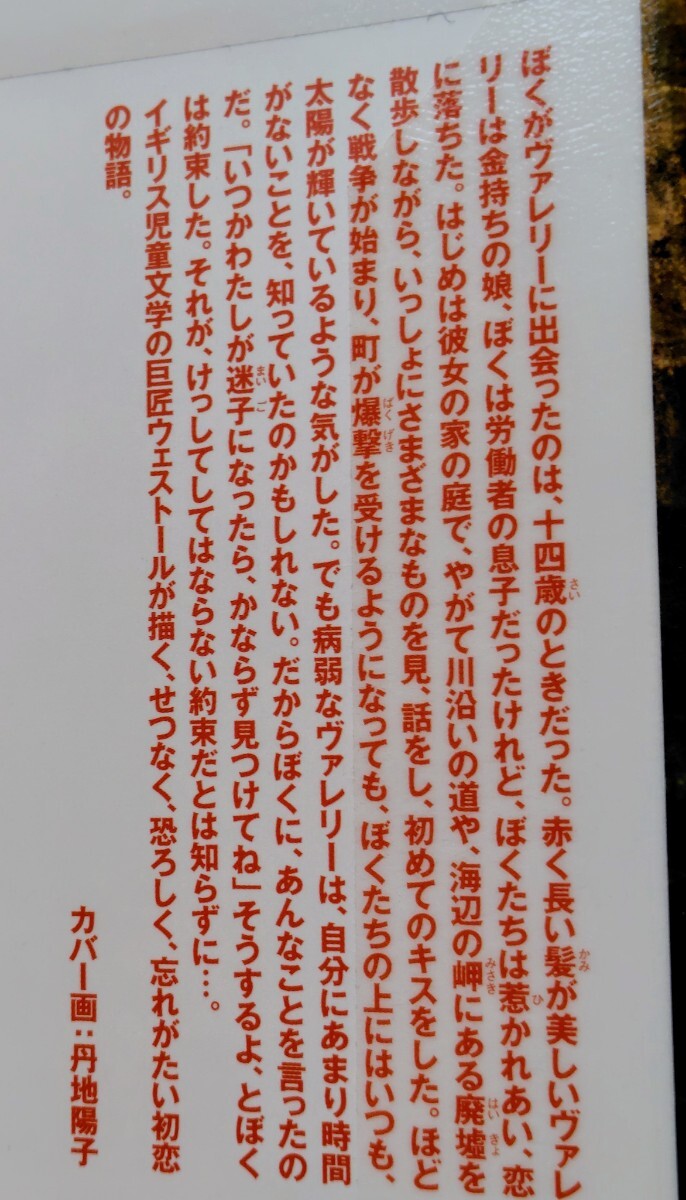 ぼくがヴァレリーに出会ったのは、十四歳のときだった。赤く長い髪が美しいヴァレ
リーは金持ちの娘、ぼくは労働者の息子だったけれど、ぼくたちは惹かれあい、恋
に落ちた。はじめは彼女の家の庭で、やがて川沿いの道や、海辺の岬にある廃墟を
散歩しながら、いっしょにさまざまなものを見、話をし、初めてのキスをした。ほど
なく戦争が始まり、町が爆撃を受けるようになっても、ぼくたちの上にはいつも、
太陽が輝いているような気がした。でも病弱なヴァレリーは、自分にあまり時間
がないことを、知っていたのかもしれない。だからぼくに、あんなことを言ったの
だ。「いつかわたしが迷子になったら、かならず見つけてね」そうするよ、とぼく
は約束した。それが、けっしてしてはならない約束だとは知らずに…。
イギリス児童文学の巨匠ウェストールが描く、せつなく、恐ろしく、忘れがたい初恋
の物語。
カバー画：丹地陽子